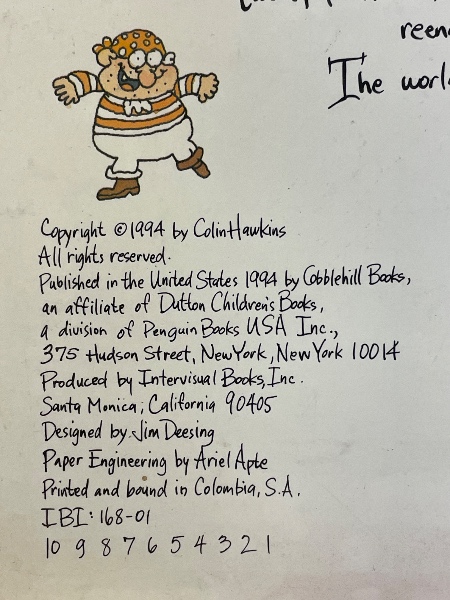 reen
The worl
Copyright ©1994 by Colin Hawkins
All rights reserved.
Published in the United States 1994 by Cobblehill Books,
an affiliate of Dutton Children's Books,
a division of Penguin Books USA Inc.,
375 Hudson Street, New York, New York 10014
Produced by Intervisual Books, Inc.
Santa Monica, California 90405
Designed by Jim Deesing
Paper Engineering by Ariel Apte
Printed and bound in Colombia, S.A.
IBI: 168-01
10 9 8 7 6 5 4 3 2 1